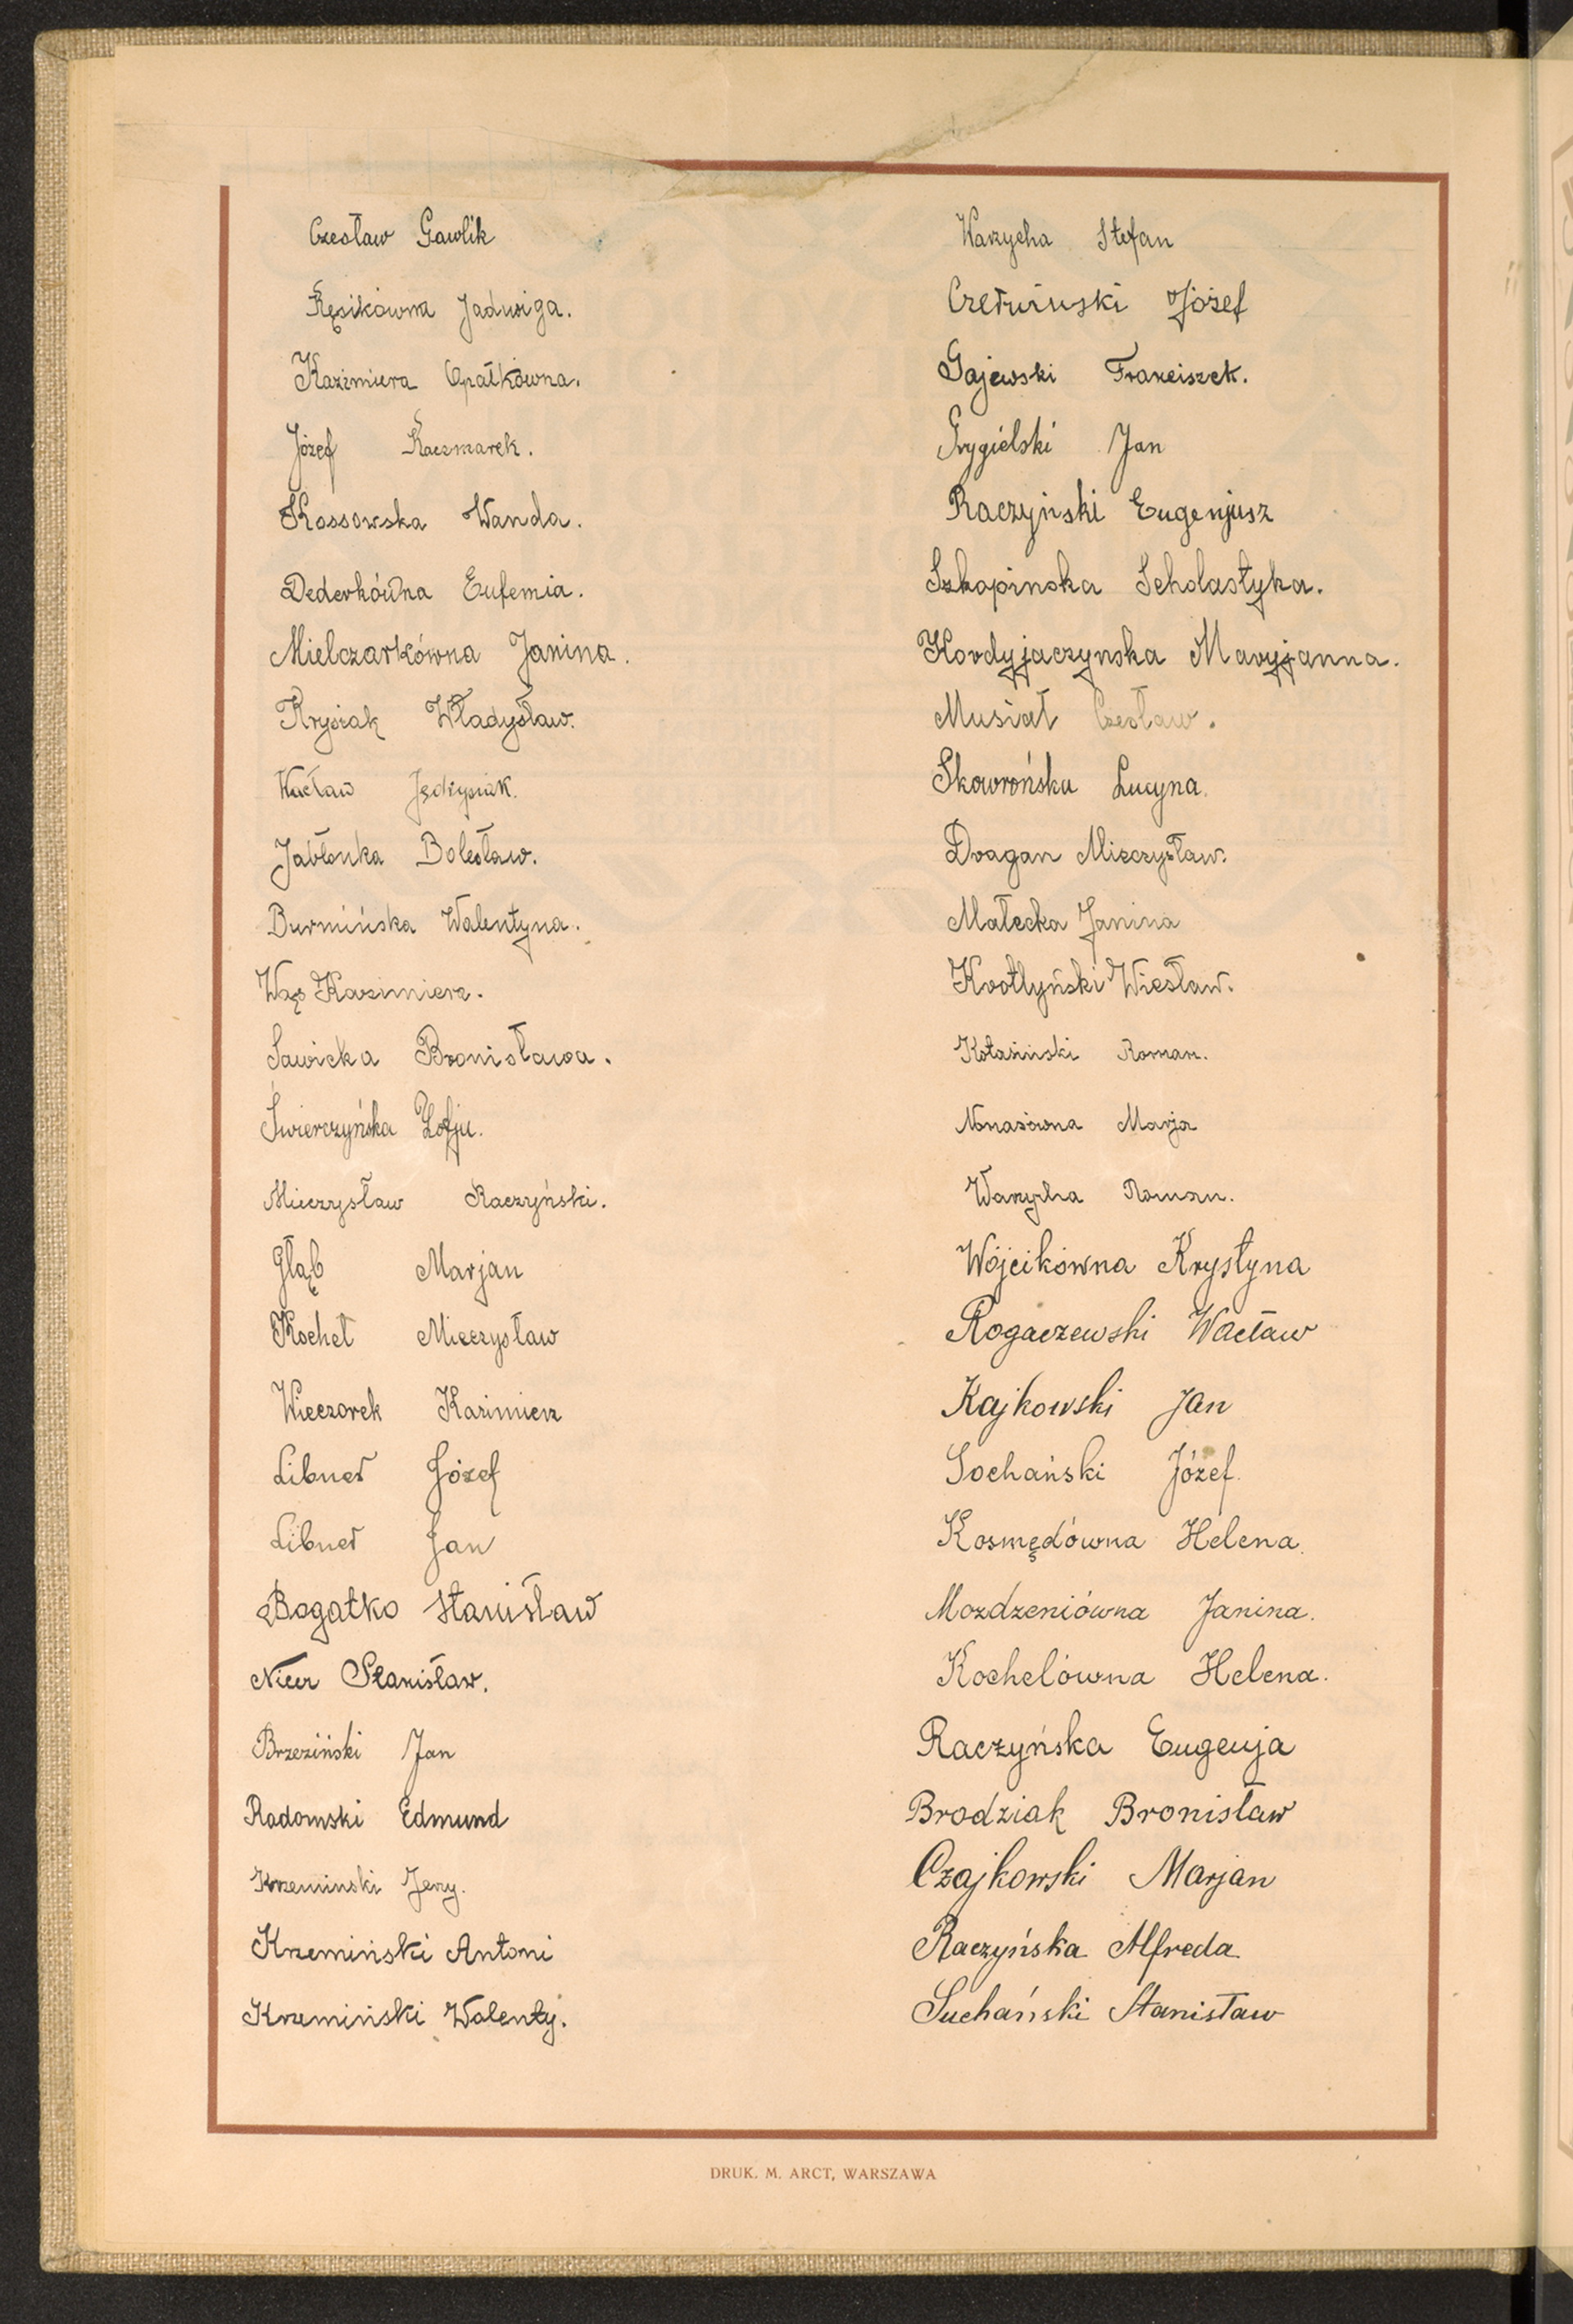 Czesław Gawlik
Kęsikówna Jadwiga.
Kazimiera Opałkówna.
Józef Kaczmarek.
Kossowska Wanda.
Dederkówna Eufemia.
Mielczarkówna Janina.
Krysiak Władysław.
Wacław Jędrysiak.
Jabłonka Bolesław.
Burmińska Walentyna.
Wąs Kazimierz.
Sawicka Bronisława.
Świerczyńska Zofja.
Mieczysław Raczyński.
Głąb Marjan
Kochel Mieczysław
Wieczorek Kazimierz
Libner Józef
Libner Jan
Bogatko Stanisław
Stanisław.
Brzeziński Jan
Radomski Edmund
Krzeminski Jerzy.
Krzemiński Antoni
Krzemiński Walenty.
Warzycha Stefan
Czetwiński Józef
Gajewski Franciszek.
Grygielski Jan
Raczyński Eugenjusz
Szkopinska Scholastyka.
Kordyjaczynska Maryjanna.
Musiał Czesław.
Skowrońska Lucyna.
Dragan Mieczysław.
Małecka Janina
Krotlyński Wiesław.
Kotasiński Roman.
Nonasówna Marja
Warzycha Roman.
Wójcikówna Krystyna
Rogaczewski Wacław
Kajkowski Jan
Sochański Józef.
Kosmędówna Helena.
Mozdzeniówna Janina.
Kochelówna Helena.
Raczyńska Eugenja
Brodziak Bronisław
Czajkowski Marjan
Raczyńska Alfreda
Suchański Stanisław
DRUK. M. ARCT, WARSZAWA